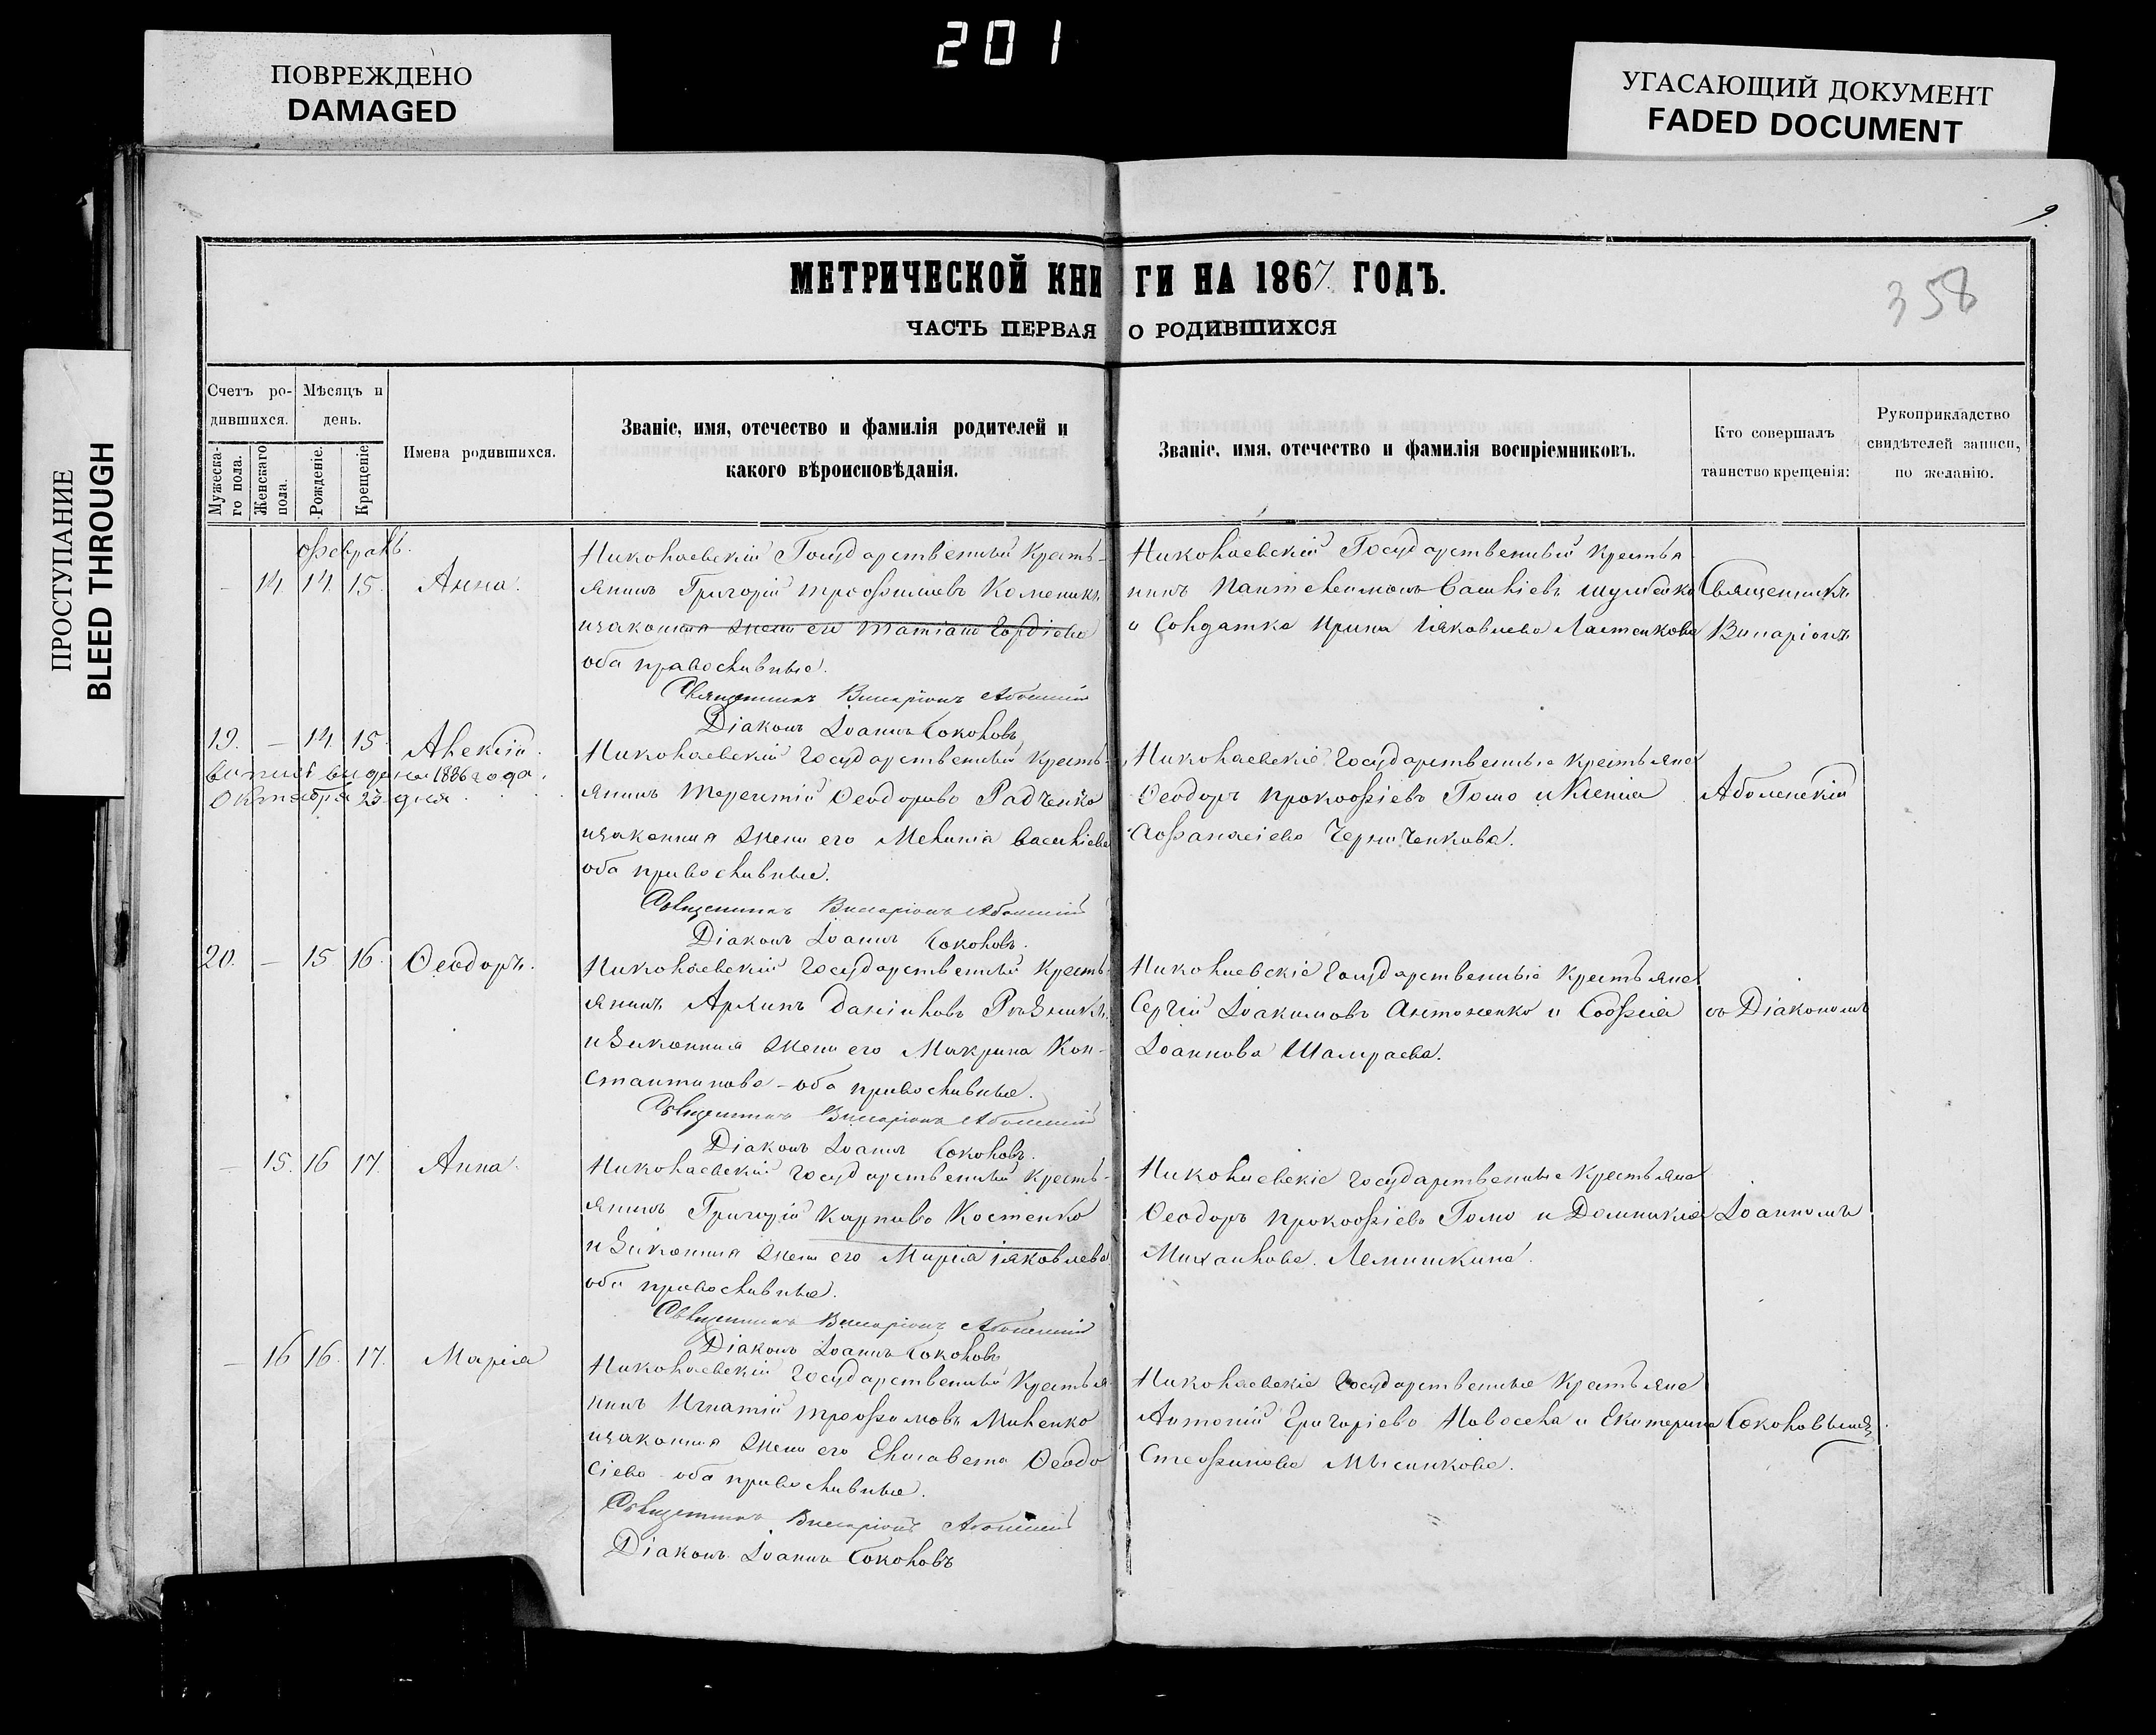 201
ПОВРЕЖДЕНО
DAMAGED
УГАСАЮЩИЙ ДОКУМЕНТ
FADED DOCUMENT
ПРОСТУПАНИЕ
BLEED THROUGH
9.
358
МЕТРИЧЕСКОЙ КНИГИ НА 1867 ГОДЪ.
ЧАСТЬ ПЕРВАЯ О РОДИВШИХСЯ
Счетъ родившихся.
Мужескаго пола.
Женскаго пола.
Мѣсяцъ и день.
Рожденіе.
Крещеніе.
Имена родившихся.
Званіе, имя, отечество и фамилія родителей и
какого вѣроисповѣданія.
Званіе, имя, отечество и фамилія воспріемниковъ.
Кто совершалъ
таинство крещенія:
Рукоприкладство
свидѣтелей записи,
по желанію.
февраль.
– 14. 14. 15. Анна.
Николаевскій Государственный Кресть-
янинъ Григорій Трофимовъ
изаконная жена его Татіана Гордіева
оба православные.
Священникъ Виссаріонъ
Діаконъ Іоаннъ Соколовъ
Николаевскій Государственный Крестья-
нинъ Пантелеимонъ Васильевъ
и Солдатка Ирина Іяковлева
Священникъ
19. – 14. 15. Алексій.
выпись выдана 1886 года
Октября 23 дня
Николаевскій Государственный Кресть-
янинъ Терентій Ѳеодоровъ Радченко
изаконная жена его Меланія Васильева
оба православные.
Священникъ Виссаріонъ
Діаконъ Іоаннъ Соколовъ.
Николаевскіе Государственные Крестьяне
Ѳеодоръ Прокофіевъ Гомо и Ксенія
Афанасіева
20. – 15 16. Ѳеодоръ.
Николаевскій Государственный Кресть-
янинъ Архипъ Даніиловъ Рѣзникъ
и Законная жена его Макрина Кон-
стантинова – оба православные.
Священникъ Виссаріонъ
Діаконъ Іоаннъ Соколовъ.
Николаевскіе Государственные Крестьяне
Сергій Іоакимовъ Антоненко и Софія
Іоаннова Шамраева.
съ Діакономъ
– 15. 16 17. Анна.
Николаевскій Государственный Кресть-
янинъ Григорій Карповъ Костенко
и Законная жена его Марія Іяковлева
оба православные.
Священникъ Виссаріонъ
Діаконъ Іоаннъ Соколовъ
Николаевскіе Государственные Крестьяне
Ѳеодоръ Прокофіевъ Гомо и Домникія
Михаилова Лемишкина.
Іоанномъ
– 16 16. 17. Марія
Николаевскій Государственный Крестья-
нинъ Игнатій Трофимовъ Миленко
изаконная жена его Елисавета Ѳеодо
сіева – оба православные.
Священникъ Виссаріонъ
Діаконъ Іоаннъ Соколовъ
Николаевскіе Государственные Крестьяне
Антоній Григоріевъ Новосела и Екатерина
Стефанова
Соколовымъ